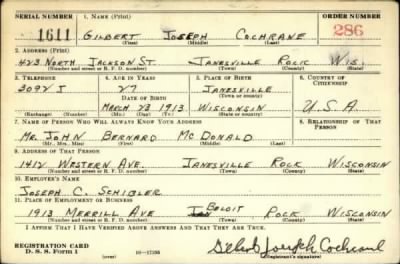 SERIAL NUMBER 1. NAME (Print) ORDER NUMBER
1611 GILBERT JOSEPH COCHRANE 286
(First) (Middle) (Last)
2. ADDRESS (Print)
423 NORTH JACKSON ST. JANESVILLE ROCK WIS.
(Number and street or R. F. D. number) (Town) (County) (State)
3. TELEPHONE 4. AGE IN YEARS 5. PLACE OF BIRTH 6. COUNTRY OF CITIZENSHIP
3092 J 27 JANESVILLE
DATE OF BIRTH (Town or county)
MARCH 23 1913 WISCONSIN U.S.A
(Exchange) (Number) (Mo.) (Day) (Yr.) (State or country)
7. NAME OF PERSON WHO WILL ALWAYS KNOW YOUR ADDRESS 8. RELATIONSHIP OF THAT PERSON
MR. JOHN BERNARD MCDONALD
(Mr., Mrs., Miss) (First) (Middle) (Last)
9. ADDRESS OF THAT PERSON
1412 WESTERN AVE. JANESVILLE ROCK WISCONSIN
(Number and street or R. F. D. number) (Town) (County) (State)
10. EMPLOYER'S NAME
JOSEPH C. SCHIBLER
11. PLACE OF EMPLOYMENT OR BUSINESS
1913 MERRILL AVE BELOIT ROCK WISCONSIN
(Number and street or R. F. D. number) (Town) (County) (State)
I AFFIRM THAT I HAVE VERIFIED ABOVE ANSWERS AND THAT THEY ARE TRUE.
REGISTRATION CARD
D. S. S. Form 1 (over) Gilbert Joseph Cochrane
(Registrant's signature)